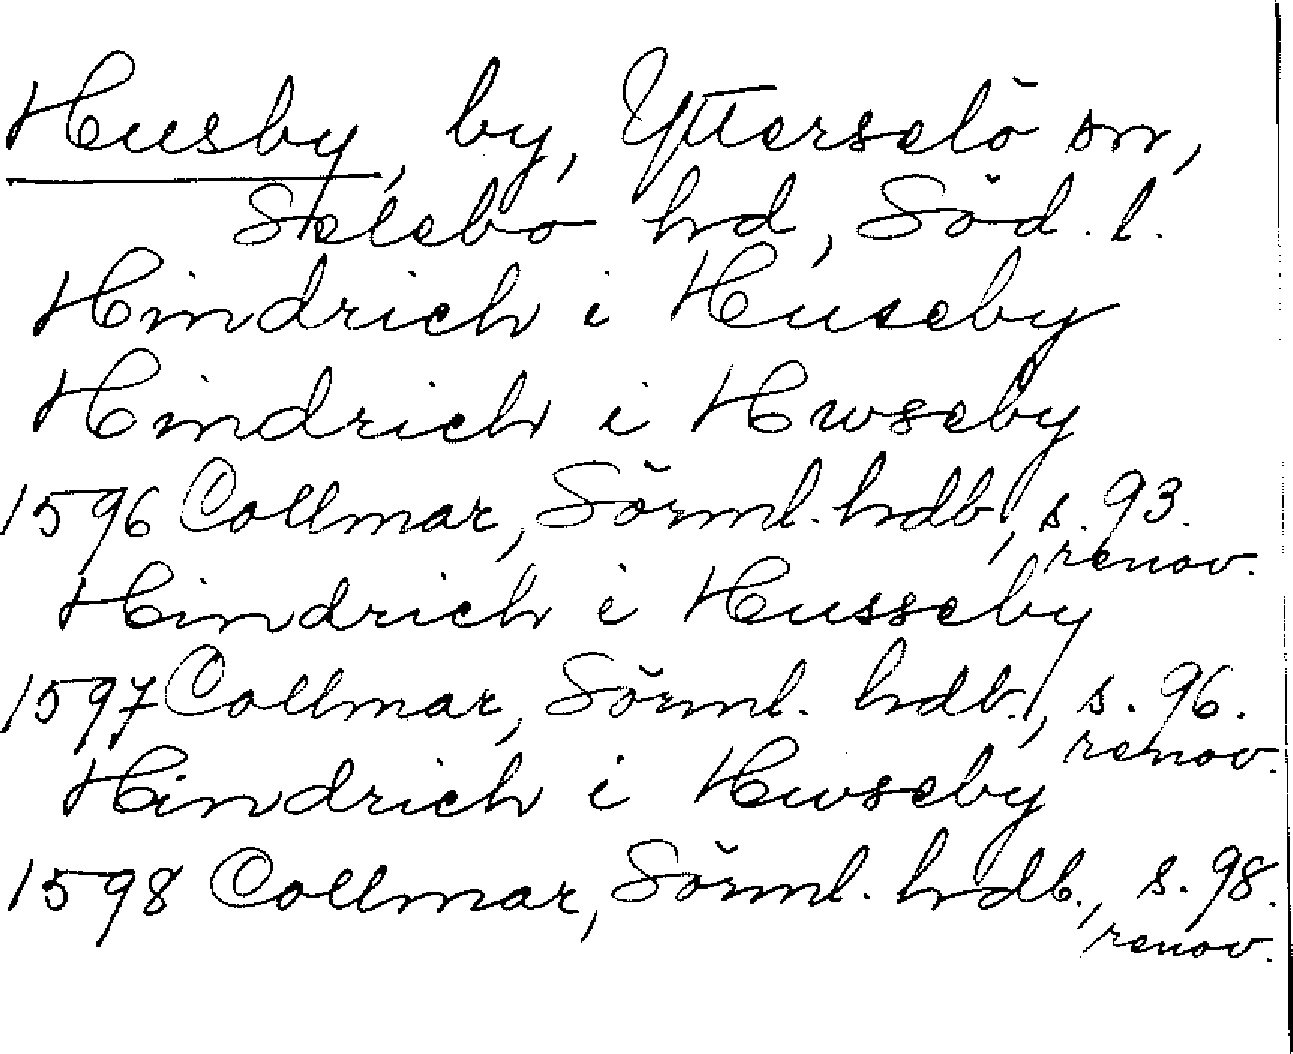 Husby, by, Ytterselö sn,
Selebo hd, Söd. l.
Hindrich i Huseby
Hindrich i Hwseby
1596 Collmar, Sörml. hdb, s. 93.
renov.
Hindrich i Husseby
1597 Collmar, Sörml. hdb., s. 96.
renov.
Hindrich i Hwseby
1598 Collmar, Sörml. hdb., s. 98.
renov.